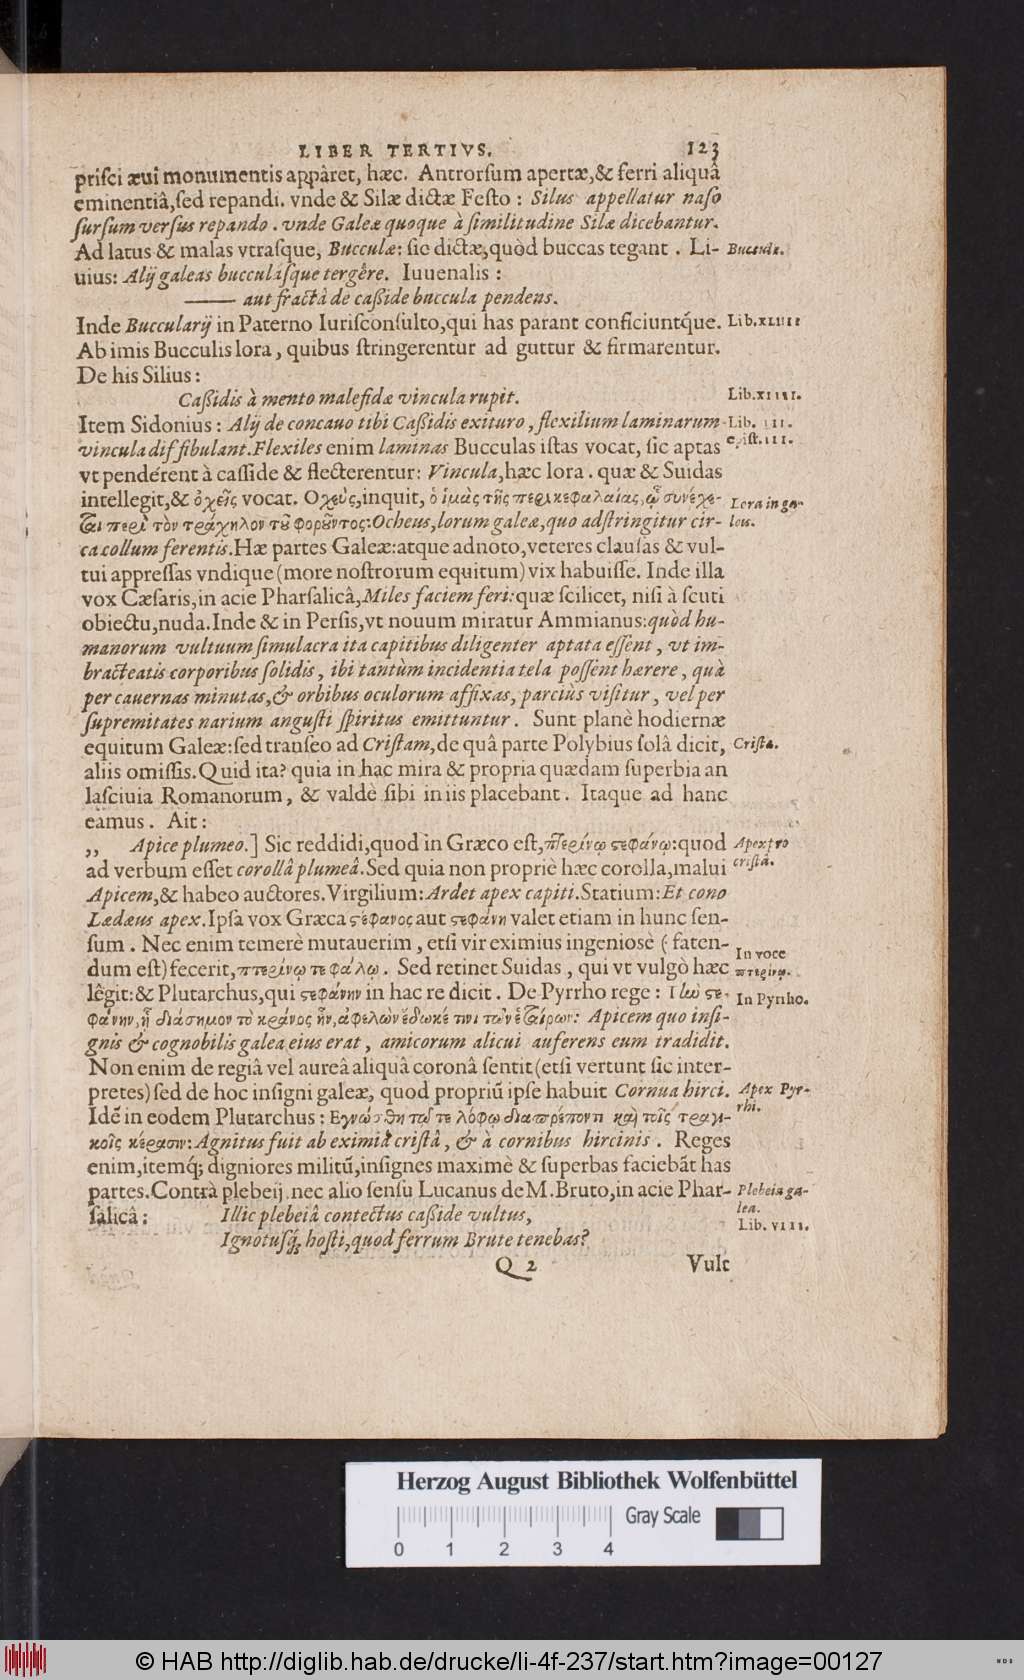 LIBER TERTIVS. 123
prisci æui monumentis appâret, hæc. Antrorsum apertæ,& ferri aliquâ
eminentiâ,sed repandi. vnde & Silæ dictæ Festo : Silus appellatur naso
sursum versus repando . vnde Galeæ quoque à similitudine Silæ dicebantur.
Ad latus & malas vtrasque, Bucculæ: sic dictæ,quòd buccas tegant . Li-
Bucculæ.
uius: Alij galeas bucculásque tergêre. Iuuenalis :
—— aut fractâ de casside buccula pendens.
Inde Buccularij in Paterno Iurisconsulto,qui has parant conficiuntq́ue.
Lib.XLIIII
Ab imis Bucculis lora, quibus stringerentur ad guttur & firmarentur.
De his Silius:
Cassidis à mento malefidæ vincula rupit.
Lib.XIIII.
Item Sidonius : Alij de concauo tibi Cassidis exituro, flexilium laminarum
Lib. III.
vincula diffibulant.Flexiles enim laminas Bucculas istas vocat, sic aptas
epist.III.
vt pendérent à casside & flecterentur: Vincula,hæc lora. quæ & Suidas
intellegit,& ὀχεῖς vocat. Οχεὺς,inquit, ὁ ἱμὰς τῆς περικεφαλαίας, ᾧ συνέχε-
Lora in ga-
ται περὶ τὸν τράχηλον τοῦ φοροῦντος:Ocheus,lorum galeæ,quo adstringitur cir-
leu.
ca collum ferentis.Hæ partes Galeæ:atque adnoto,veteres clausas & vul-
tui appressas vndique (more nostrorum equitum) vix habuisse. Inde illa
vox Cæsaris,in acie Pharsalicâ,Miles faciem feri:quæ scilicet, nisi à scuti
obiectu,nuda.Inde & in Persis,vt nouum miratur Ammianus:quòd hu-
manorum vultuum simulacra ita capitibus diligenter aptata essent, vt im-
bracteatis corporibus solidis, ibi tantùm incidentia tela possent hærere, quà
per cauernas minutas,& orbibus oculorum affixas, parciùs visitur, vel per
supremitates narium angusti spiritus emittuntur. Sunt planè hodiernæ
equitum Galeæ:sed transeo ad Cristam,de quâ parte Polybius solâ dicit,
Crista.
aliis omissis.Quid ita? quia in hac mira & propria quædam superbia an
lasciuia Romanorum, & valdè sibi in iis placebant. Itaque ad hanc
eamus. Ait:
,, Apice plumeo.] Sic reddidi,quod in Græco est,πτερίνῳ στεφάνῳ:quod
Apex pro
ad verbum esset corollâ plumeâ.Sed quia non propriè hæc corolla,malui
cristâ.
Apicem,& habeo auctores.Virgilium: Ardet apex capiti.Statium: Et cono
Lædæus apex.Ipsa vox Græca στέφανος aut στεφάνη valet etiam in hunc sen-
sum. Nec enim temerè mutauerim, etsi vir eximius ingeniosè (faten-
In voce
dum est) fecerit,πτερίνῳ τε φάλῳ. Sed retinet Suidas, qui vt vulgò hæc
πτερίνῳ.
lêgit:& Plutarchus,qui στεφάνην in hac re dicit. De Pyrrho rege : Τὼ στε-
In Pyrrho.
φάνην,ἣ διάσημον τὸ κράνος ἦν,ἀφελὼν ἔδωκέ τινι τῶν ἑταίρων: Apicem quo insi-
gnis & cognobilis galea eius erat, amicorum alicui auferens eum tradidit.
Non enim de regiâ vel aureâ aliquâ coronâ sentit (etsi vertunt sic inter-
pretes) sed de hoc insigni galeæ, quod propriũ ipse habuit Cornua hirci.
Apex Pyr-
rhi.
Idẽ in eodem Plutarchus : Εγνώσθη τῷ τε λόφῳ διαπρέποντι καὶ τοῖς τραγι-
κοῖς κέρασιν: Agnitus fuit ab eximiâ cristâ, & à cornibus hircinis. Reges
enim,itemq́; digniores militũ,insignes maximè & superbas faciebãt has
partes.Contrà plebeij.nec alio sensu Lucanus de M.Bruto,in acie Phar-
Plebeia ga-
lea.
salicâ: Illic plebeiâ contectus casside vultus,
Lib. VIII.
Ignotusq́; hosti,quod ferrum Brute tenebas?
Q 2 Vult
Herzog August Bibliothek Wolfenbüttel
Gray Scale
0 1 2 3 4
© HAB http://diglib.hab.de/drucke/li-4f-237/start.htm?image=00127